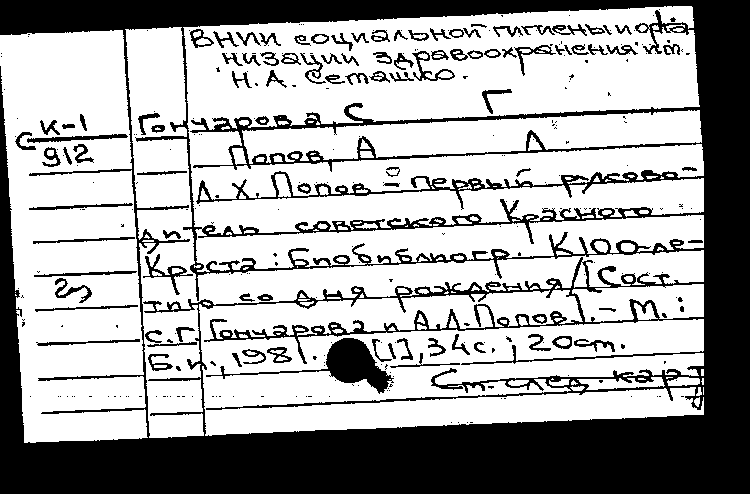 ВНИИ социальной гигиены и орга-
низации здравоохранения им.
Н. А. Семашко.
К-1
912
Гончарова, С Г
Попов, А Л
Л. Х. Попов – первый руково-
дитель советского Красного
Креста: Биобиблиогр. К 100-ле-
тию со дня рождения / [Сост.
С. Г. Гончарова и А. Л. Попов]. – М. :
Б. и., 1981. [1], 34 с. ; 20 см.
См. след. карт